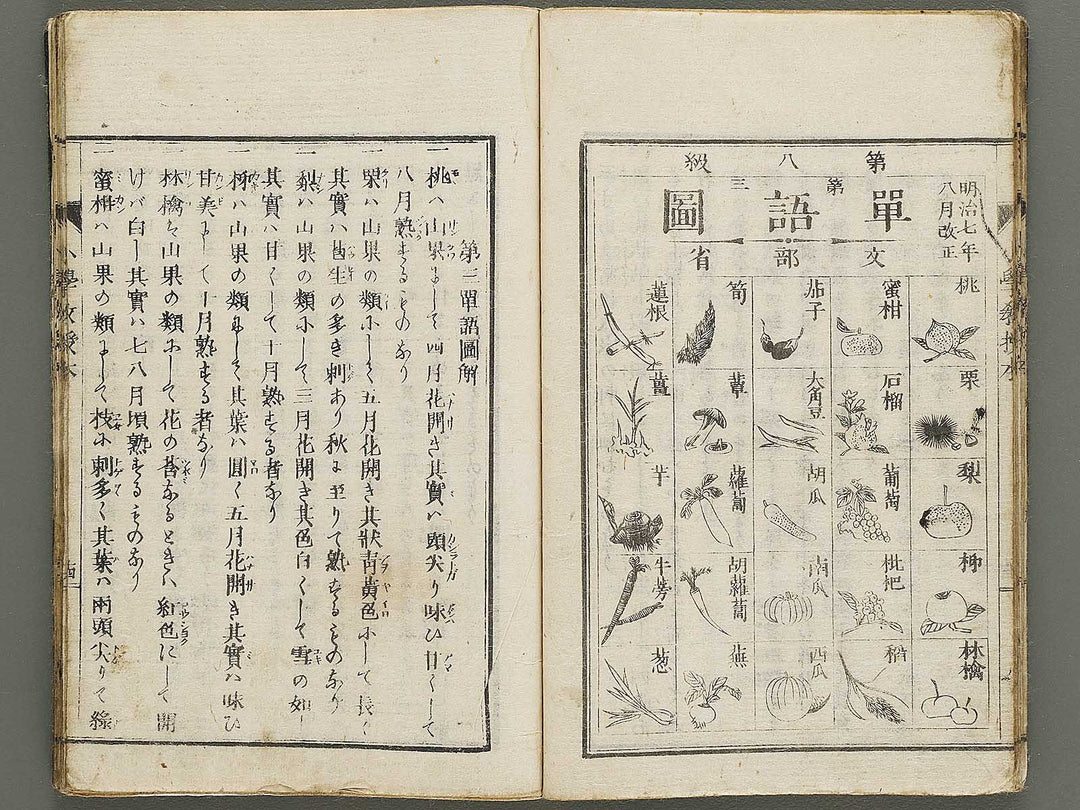 第八級
第三
單語圖
文部省
明治七年
八月改正
桃
栗
梨
柿
林檎
蜜柑
石榴
葡萄
枇杷
稻
茄子
大角豆
胡瓜
南瓜
西瓜
筍
蕈
蘿蔔
胡蘿蔔
蕪
蓮根
薑
芋
牛蒡
葱
第三單語圖解
一桃ハ山果にして四月花開き其實ハ頭尖り味ひ甘くして
八月熟するものなり
一栗ハ山果の類にして五月花開き其狀靑黃色にして長く
其實ハ皆生の多き刺あり秋に至りて熟するものなり
一梨ハ山果の類にして三月花開き其色白くして雪の如し
其實ハ甘くして十月熟する者なり
一柿ハ山果の類にして其葉ハ圓く五月花開き其實ハ味ひ
甘美にして十月熟する者なり
一林檎も山果の類にして花の莟なるときハ紅色にして開
けバ白し其實ハ七八月頃熟するものなり
一蜜柑ハ山果の類にして枝に刺多く其葉ハ兩頭尖りて綠
小學敎授本